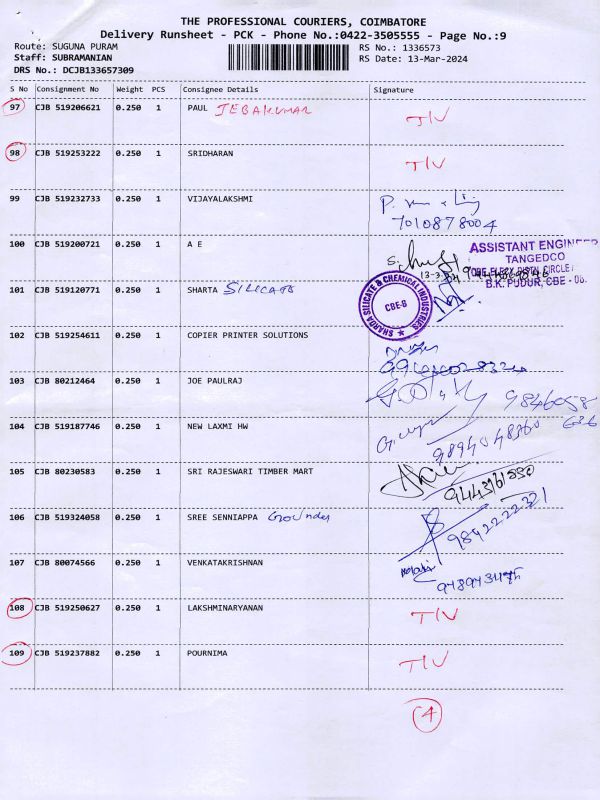 THE PROFESSIONAL COURIERS, COIMBATORE
Delivery Runsheet - PCK - Phone No.:0422-3505555 - Page No.:9
Route: SUGUNA PURAM RS No.: 1336573
Staff: SUBRAMANIAN RS Date: 13-Mar-2024
DRS No.: DCJB133657309
S No Consignment No Weight PCS Consignee Details Signature
97 CJB 519206621 0.250 1 PAUL JEBAKUMAR T/V
98 CJB 519253222 0.250 1 SRIDHARAN T/V
99 CJB 519232733 0.250 1 VIJAYALAKSHMI
7010878004
100 CJB 519200721 0.250 1 A E
ASSISTANT ENGINEER
TANGEDCO
B.K. PUDUR, CBE - 08.
101 CJB 519120771 0.250 1 SHARTA SILICATE
SHARDA SILICATE & CHEMICAL INDUSTRIES
CBE-8
102 CJB 519254611 0.250 1 COPIER PRINTER SOLUTIONS
103 CJB 80212464 0.250 1 JOE PAULRAJ
9846058
626
104 CJB 519187746 0.250 1 NEW LAXMI HW
9894048760
105 CJB 80230583 0.250 1 SRI RAJESWARI TIMBER MART
106 CJB 519324058 0.250 1 SREE SENNIAPPA Gounder
9842222321
107 CJB 80074566 0.250 1 VENKATAKRISHNAN
108 CJB 519250627 0.250 1 LAKSHMINARYANAN T/V
109 CJB 519237882 0.250 1 POURNIMA T/V
4